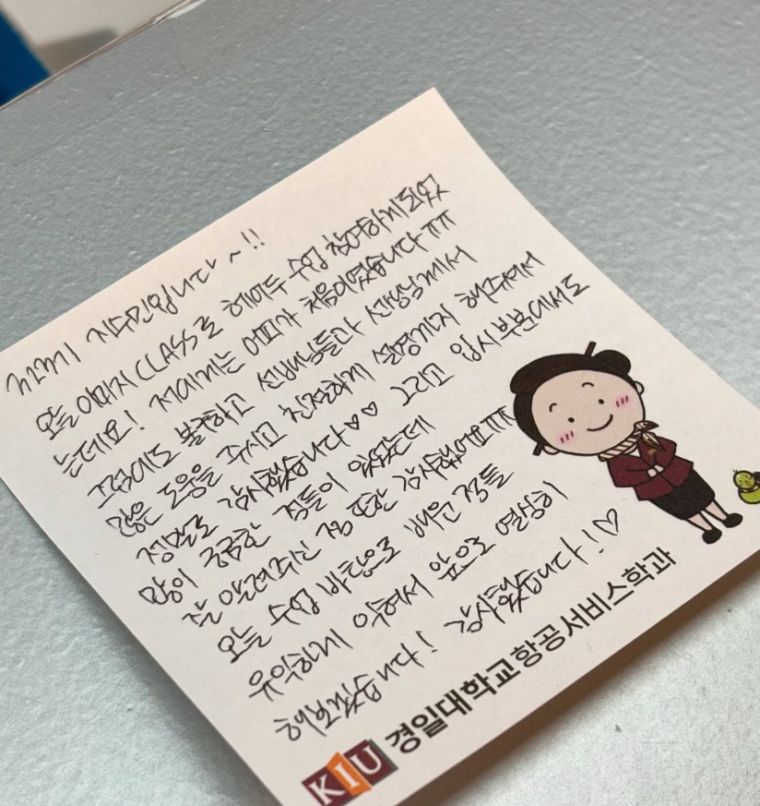 지수민입니다~!!
오늘 이미지 CLASS로 헤어두 수업 참여하게되었
는데요! 저에게는 어피가 처음이었습니다ㅠㅠ
그럼에도 불구하고 선배님들과 선생님께서
많은 도움을 주시고 친절하게 설명까지 해주셔서
정말로 감사했습니다♡♡ 그리고 입시부분에서도
많이 궁금한 점들이 있었는데
잘 알려주신 점 또한 감사했어요ㅠㅠ
오늘 수업 바탕으로 배운 점들
유익하게 익혀서 앞으로 열심히
해보겠습니다! 감사했습니다!♡
KIU 경일대학교항공서비스학과